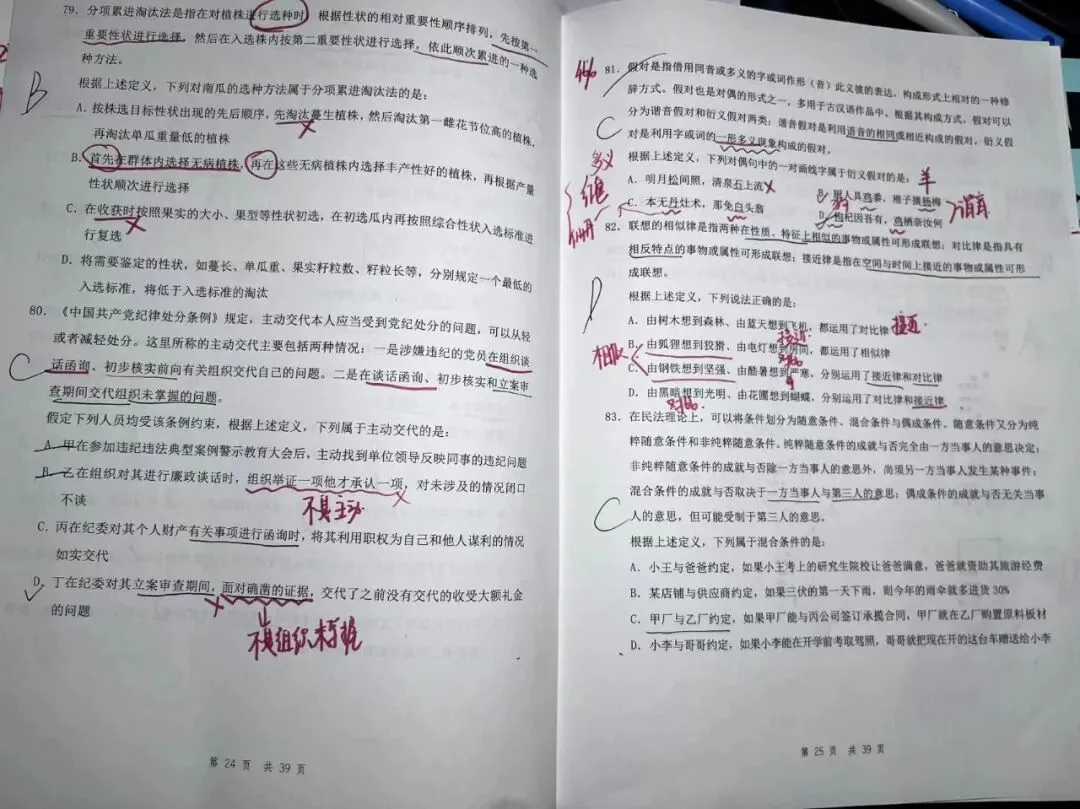 79. 分项累进淘汰法是指在对植株进行选种时，根据性状的相对重要性顺序排列，先按第一
重要性状进行选择，然后在入选株内按第二重要性状进行选择，依此顺次累进的一种选
种方法。
B
根据上述定义，下列对南瓜的选种方法属于分项累进淘汰法的是：
A. 按株选目标性状出现的先后顺序，先淘汰蔓生植株，然后淘汰第一雌花节位高的植株，
再淘汰单瓜重量低的植株
B. 首先在群体内选择无病植株，再在这些无病植株内选择丰产性好的植株，再根据产量
性状顺次进行选择
C. 在收获时按照果实的大小、果型等性状初选，在初选瓜内再按照综合性状入选标准进
行复选
D. 将需要鉴定的性状，如蔓长、单瓜重、果实籽粒数、籽粒长等，分别规定一个最低的
入选标准，将低于入选标准的淘汰
80. 《中国共产党纪律处分条例》规定，主动交代本人应当受到党纪处分的问题，可以从轻
或者减轻处分。这里所称的主动交代主要包括两种情况：一是涉嫌违纪的党员在组织谈
C
话函询、初步核实前向有关组织交代自己的问题。二是在谈话函询、初步核实和立案审
查期间交代组织未掌握的问题。
假定下列人员均受该条例约束，根据上述定义，下列属于主动交代的是：
A. 甲在参加违纪违法典型案例警示教育大会后，主动找到单位领导反映同事的违纪问题
B. 乙在组织对其进行廉政谈话时，组织举证一项他才承认一项，对未涉及的情况闭口
不谈
不是主动
C. 丙在纪委对其个人财产有关事项进行函询时，将其利用职权为自己和他人谋利的情况
如实交代
D. 丁在纪委对其立案审查期间，面对确凿的证据，交代了之前没有交代的收受大额礼金
的问题
不是组织未掌握
第 24 页 共 39 页
81. 假对是指借用同音或多义的字或词作形（音）此义彼的表达，构成形式上相对的一种修
辞方式。假对也是对偶的形式之一，多用于古汉语作品中。根据其构成方式，假对可以
分为谐音假对和衍义假对两类：谐音假对是利用语音的相同或相近构成的假对，衍义假
C
对是利用字或词的一形多义现象构成的假对。
多义
根据上述定义，下列对偶句中的一对画线字属于衍义假对的是：
羊
A. 明月松间照，清泉石上流
B. 厨人具鸡黍，稚子摘杨梅
C. 本无丹灶术，那免白头翁
D. 枸杞因吾有，鸡栖奈汝何
谐音
82. 联想的相似律是指两种在性质、特征上相似的事物或属性可形成联想；对比律是指具有
相反特点的事物或属性可形成联想；接近律是指在空间与时间上接近的事物或属性可形
成联想。
D
根据上述定义，下列说法正确的是：
A. 由树木想到森林、由蓝天想到飞机，都运用了对比律
接近
B. 由狐狸想到狡猾、由电灯想到房间，都运用了相似律
接近
相似
C. 由钢铁想到坚强、由酷暑想到严寒，分别运用了接近律和对比律
D. 由黑暗想到光明、由花圃想到蝴蝶，分别运用了对比律和接近律
83. 在民法理论上，可以将条件划分为随意条件、混合条件与偶成条件、随意条件又分为纯
粹随意条件和非纯粹随意条件。纯粹随意条件的成就与否完全由一方当事人的意思决定；
非纯粹随意条件的成就与否除一方当事人的意思外，尚须另一方当事人发生某种事件；
混合条件的成就与否取决于一方当事人与第三人的意思；偶成条件的成就与否无关当事
C
人的意思，但可能受制于第三人的意思。
根据上述定义，下列属于混合条件的是：
A. 小王与爸爸约定，如果小王考上的研究生院校让爸爸满意，爸爸就资助其旅游经费
B. 某店铺与供应商约定，如果三伏的第一天下雨，则今年的雨伞就多进货 30%
C. 甲厂与乙厂约定，如果甲厂能与丙公司签订承揽合同，甲厂就在乙厂购置原料板材
D. 小李与哥哥约定，如果小李能在开学前考取驾照，哥哥就把现在开的这台车赠送给小李
第 25 页 共 39 页